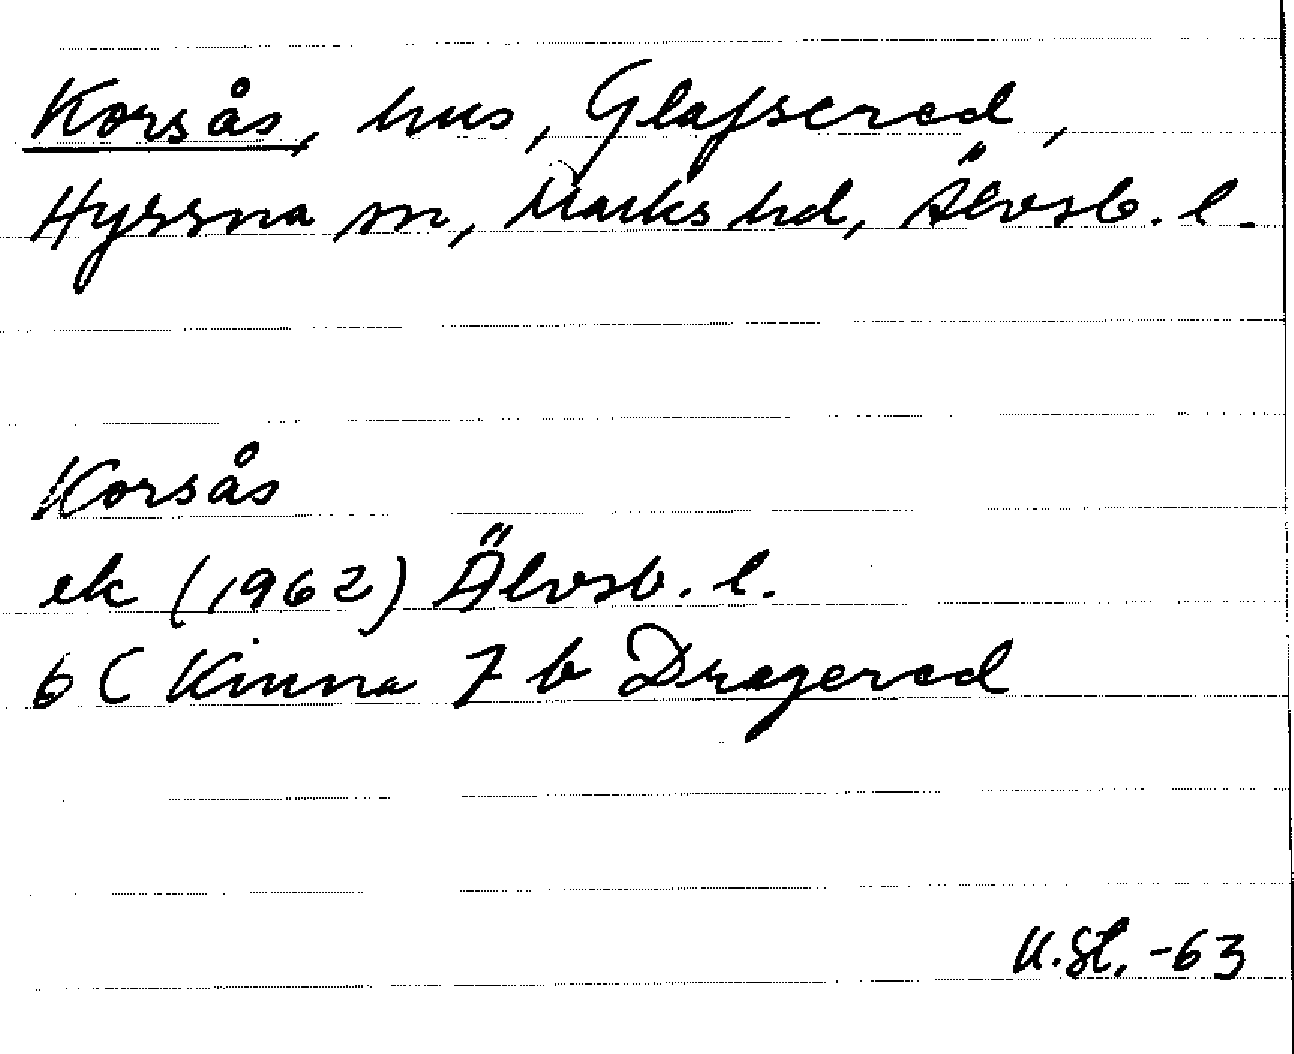 Korsås, hus, Glafsered,
Hyssna sn, Marks hd, Älvsb. l.
Korsås
ek (1962) Älvsb. l.
6 C Kinna 7 b Dragered
-63